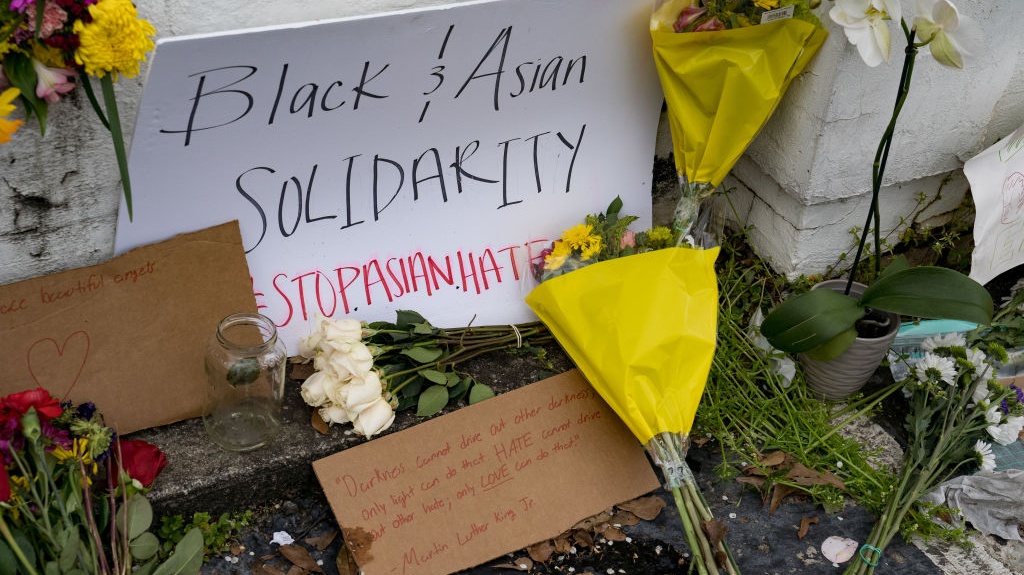 Black & Asian
SOLIDARITY
#STOPASIANHATE
beautiful angels.
"Darkness cannot drive out other darkness,
Only light can do that. HATE cannot drive
out other hate, only LOVE can do that"
-Martin Luther King Jr.